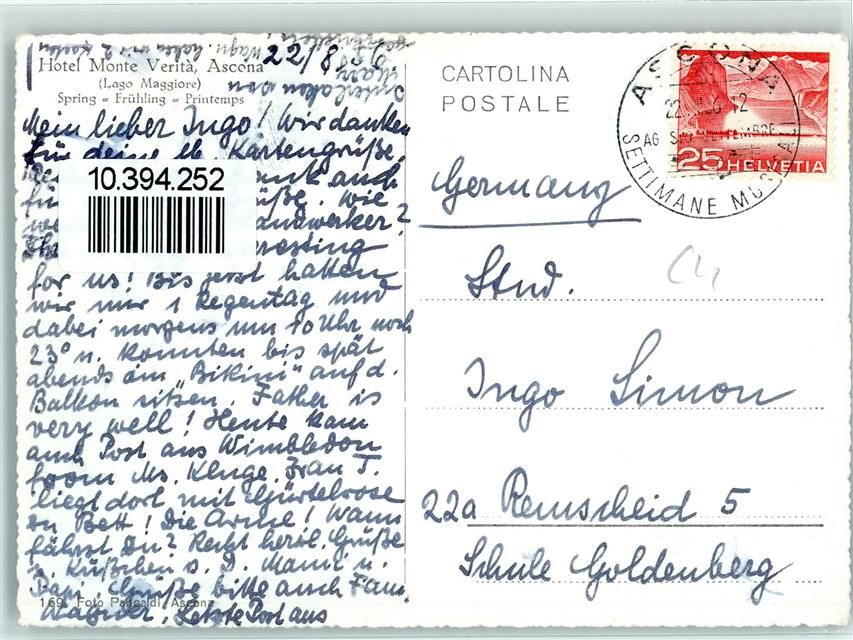 Hotel Monte Verità, Ascona
(Lago Maggiore)
Spring = Frühling = Printemps
Mein lieber Ingo! Wir danken
für deine lb. Kartengrüße.
auch
wie
10.394.252
for us! Bis jetzt hatten
wir nur 1 Regentag und
dabei morgens um 10 Uhr noch
23° u. konnten bis spät
abends im „Bikini" auf d.
Balkon sitzen. Father is
very well! Heute kam
auch Post aus Wimbledon
from Ms. Kluge. Frau T.
liegt dort mit Gürtelrose
im Bett! Die Arme! Wann
fährst Du? Recht herzl. Grüße
u. Küßchen v. D. Mami u.
Papi. Grüße bitte auch Fam.
Wagner. Letzte Post aus
Interlaken von
169 Foto Pancaldi, Ascona
CARTOLINA
POSTALE
ASCONA
SETTIMANE MUSICALI
25 HELVETIA
Germany
Stud.
Ingo Simon
22a Remscheid 5
Schule Goldenberg